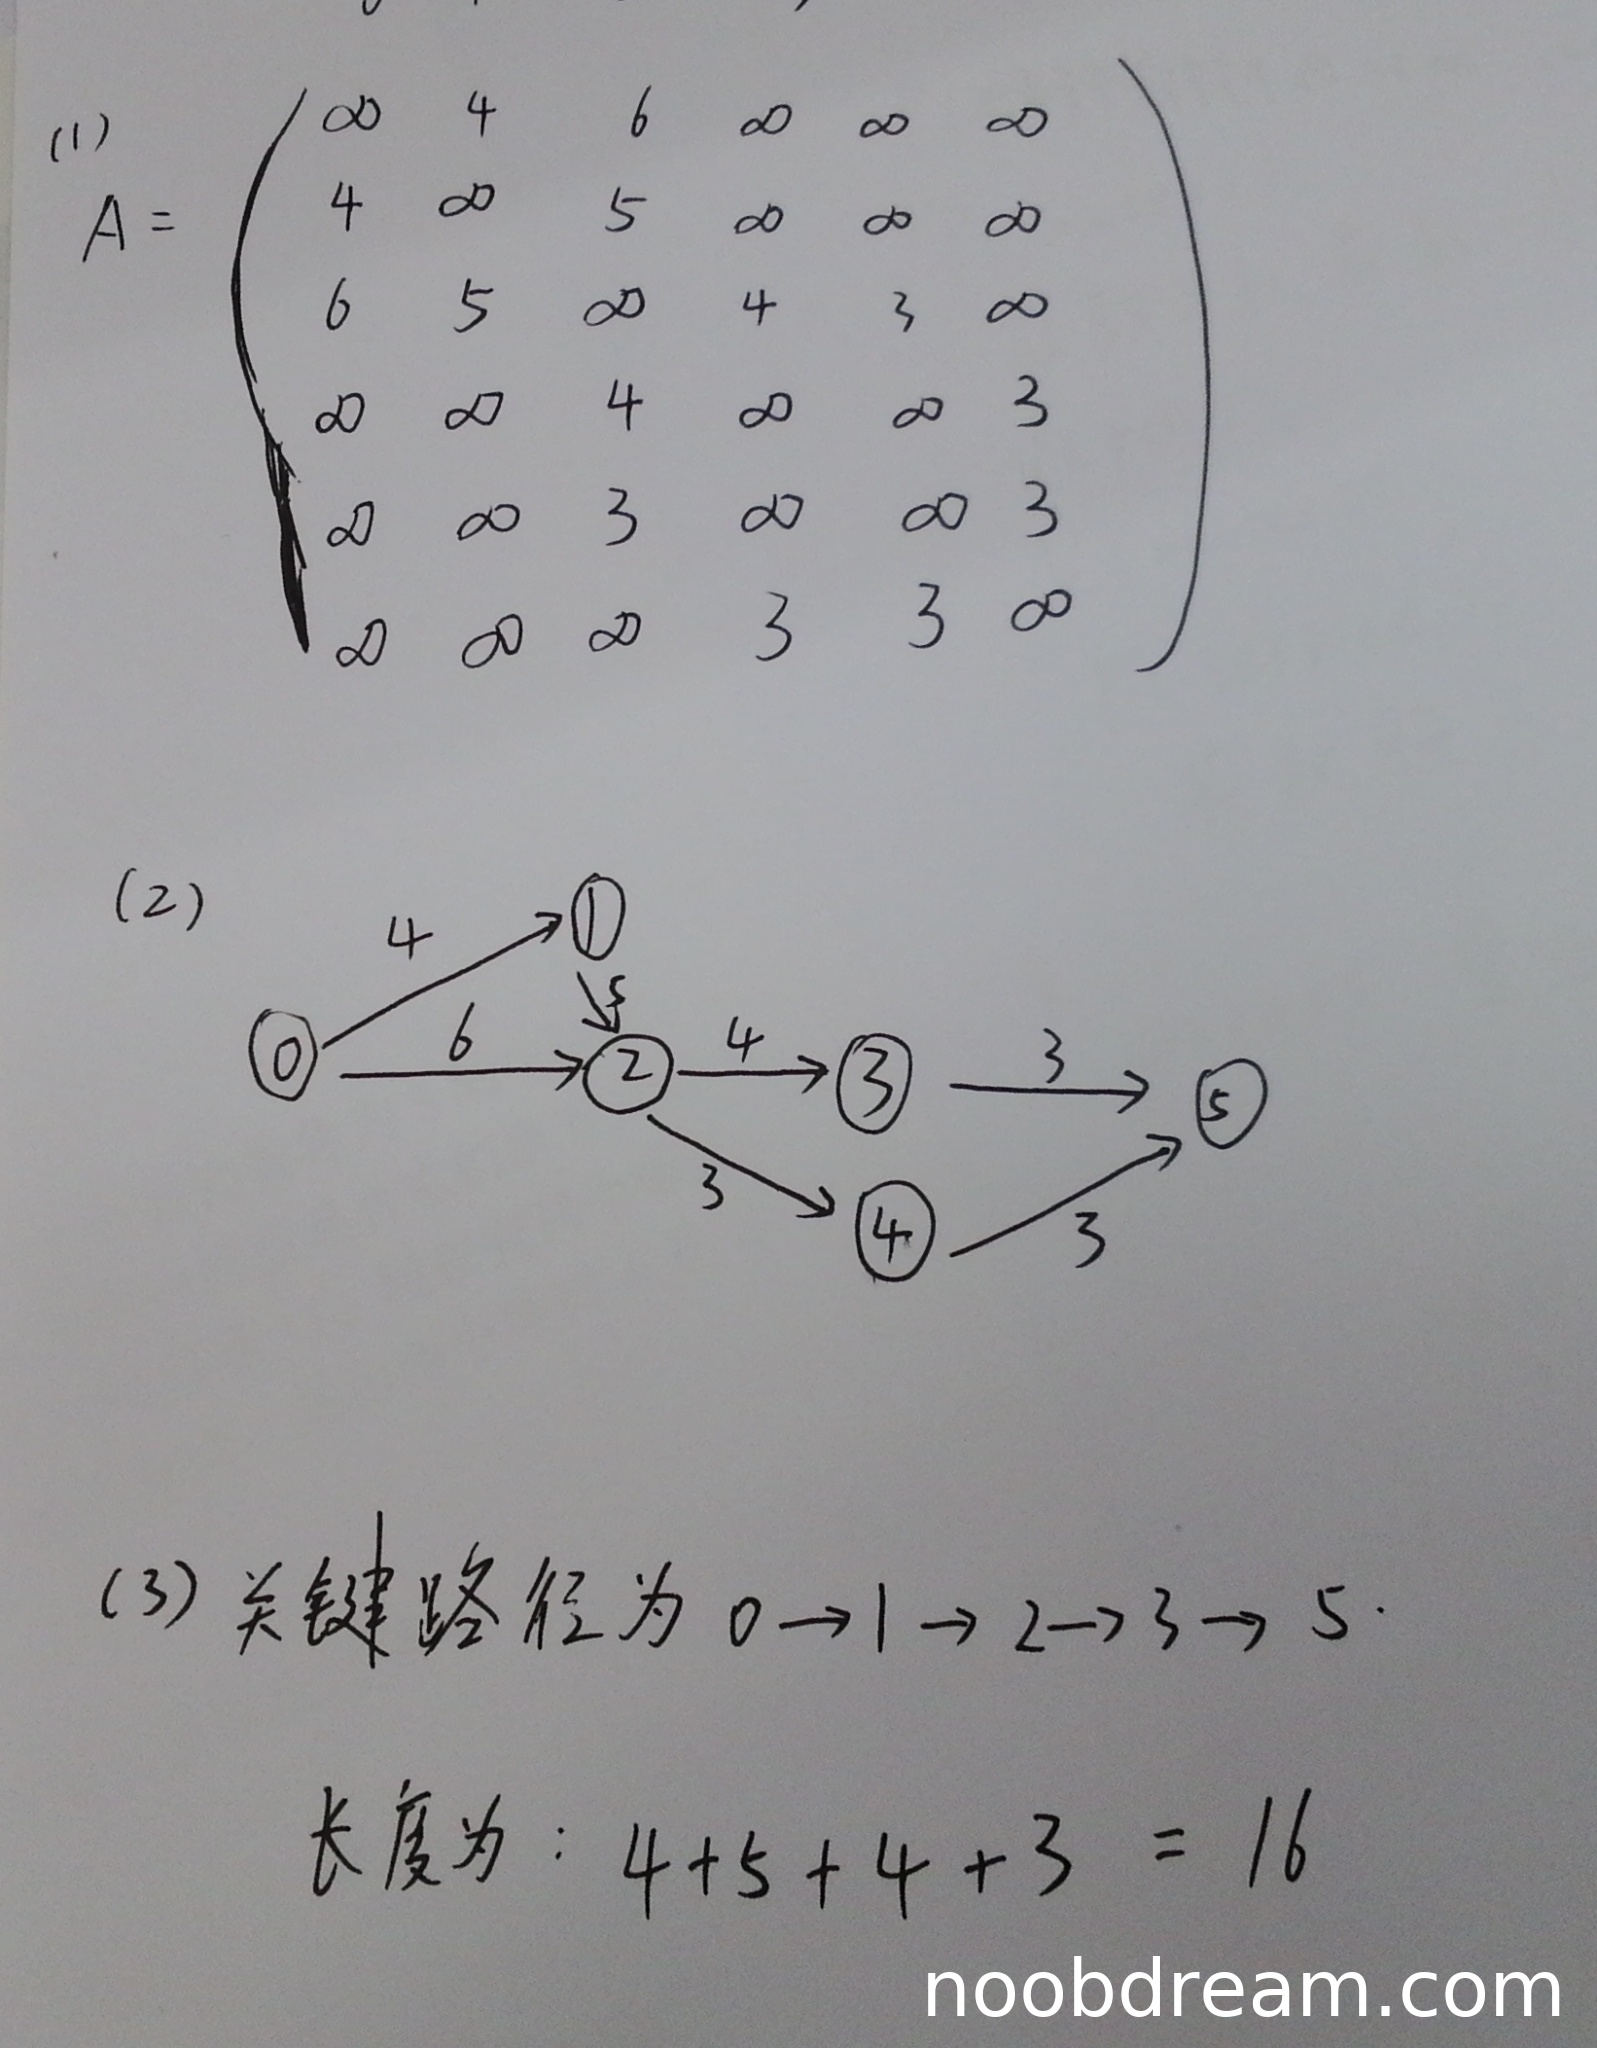 (1)
A =
∞ 4 6 ∞ ∞ ∞
4 ∞ 5 ∞ ∞ ∞
6 5 ∞ 4 3 ∞
∞ ∞ 4 ∞ ∞ 3
∞ ∞ 3 ∞ ∞ 3
∞ ∞ ∞ 3 3 ∞
(2)
4 1
5
0 6 2 4 3 3 5
3 4 3
(3) 关键路径为 0→1→2→3→5.
长度为: 4+5+4+3 = 16
noobdream.com